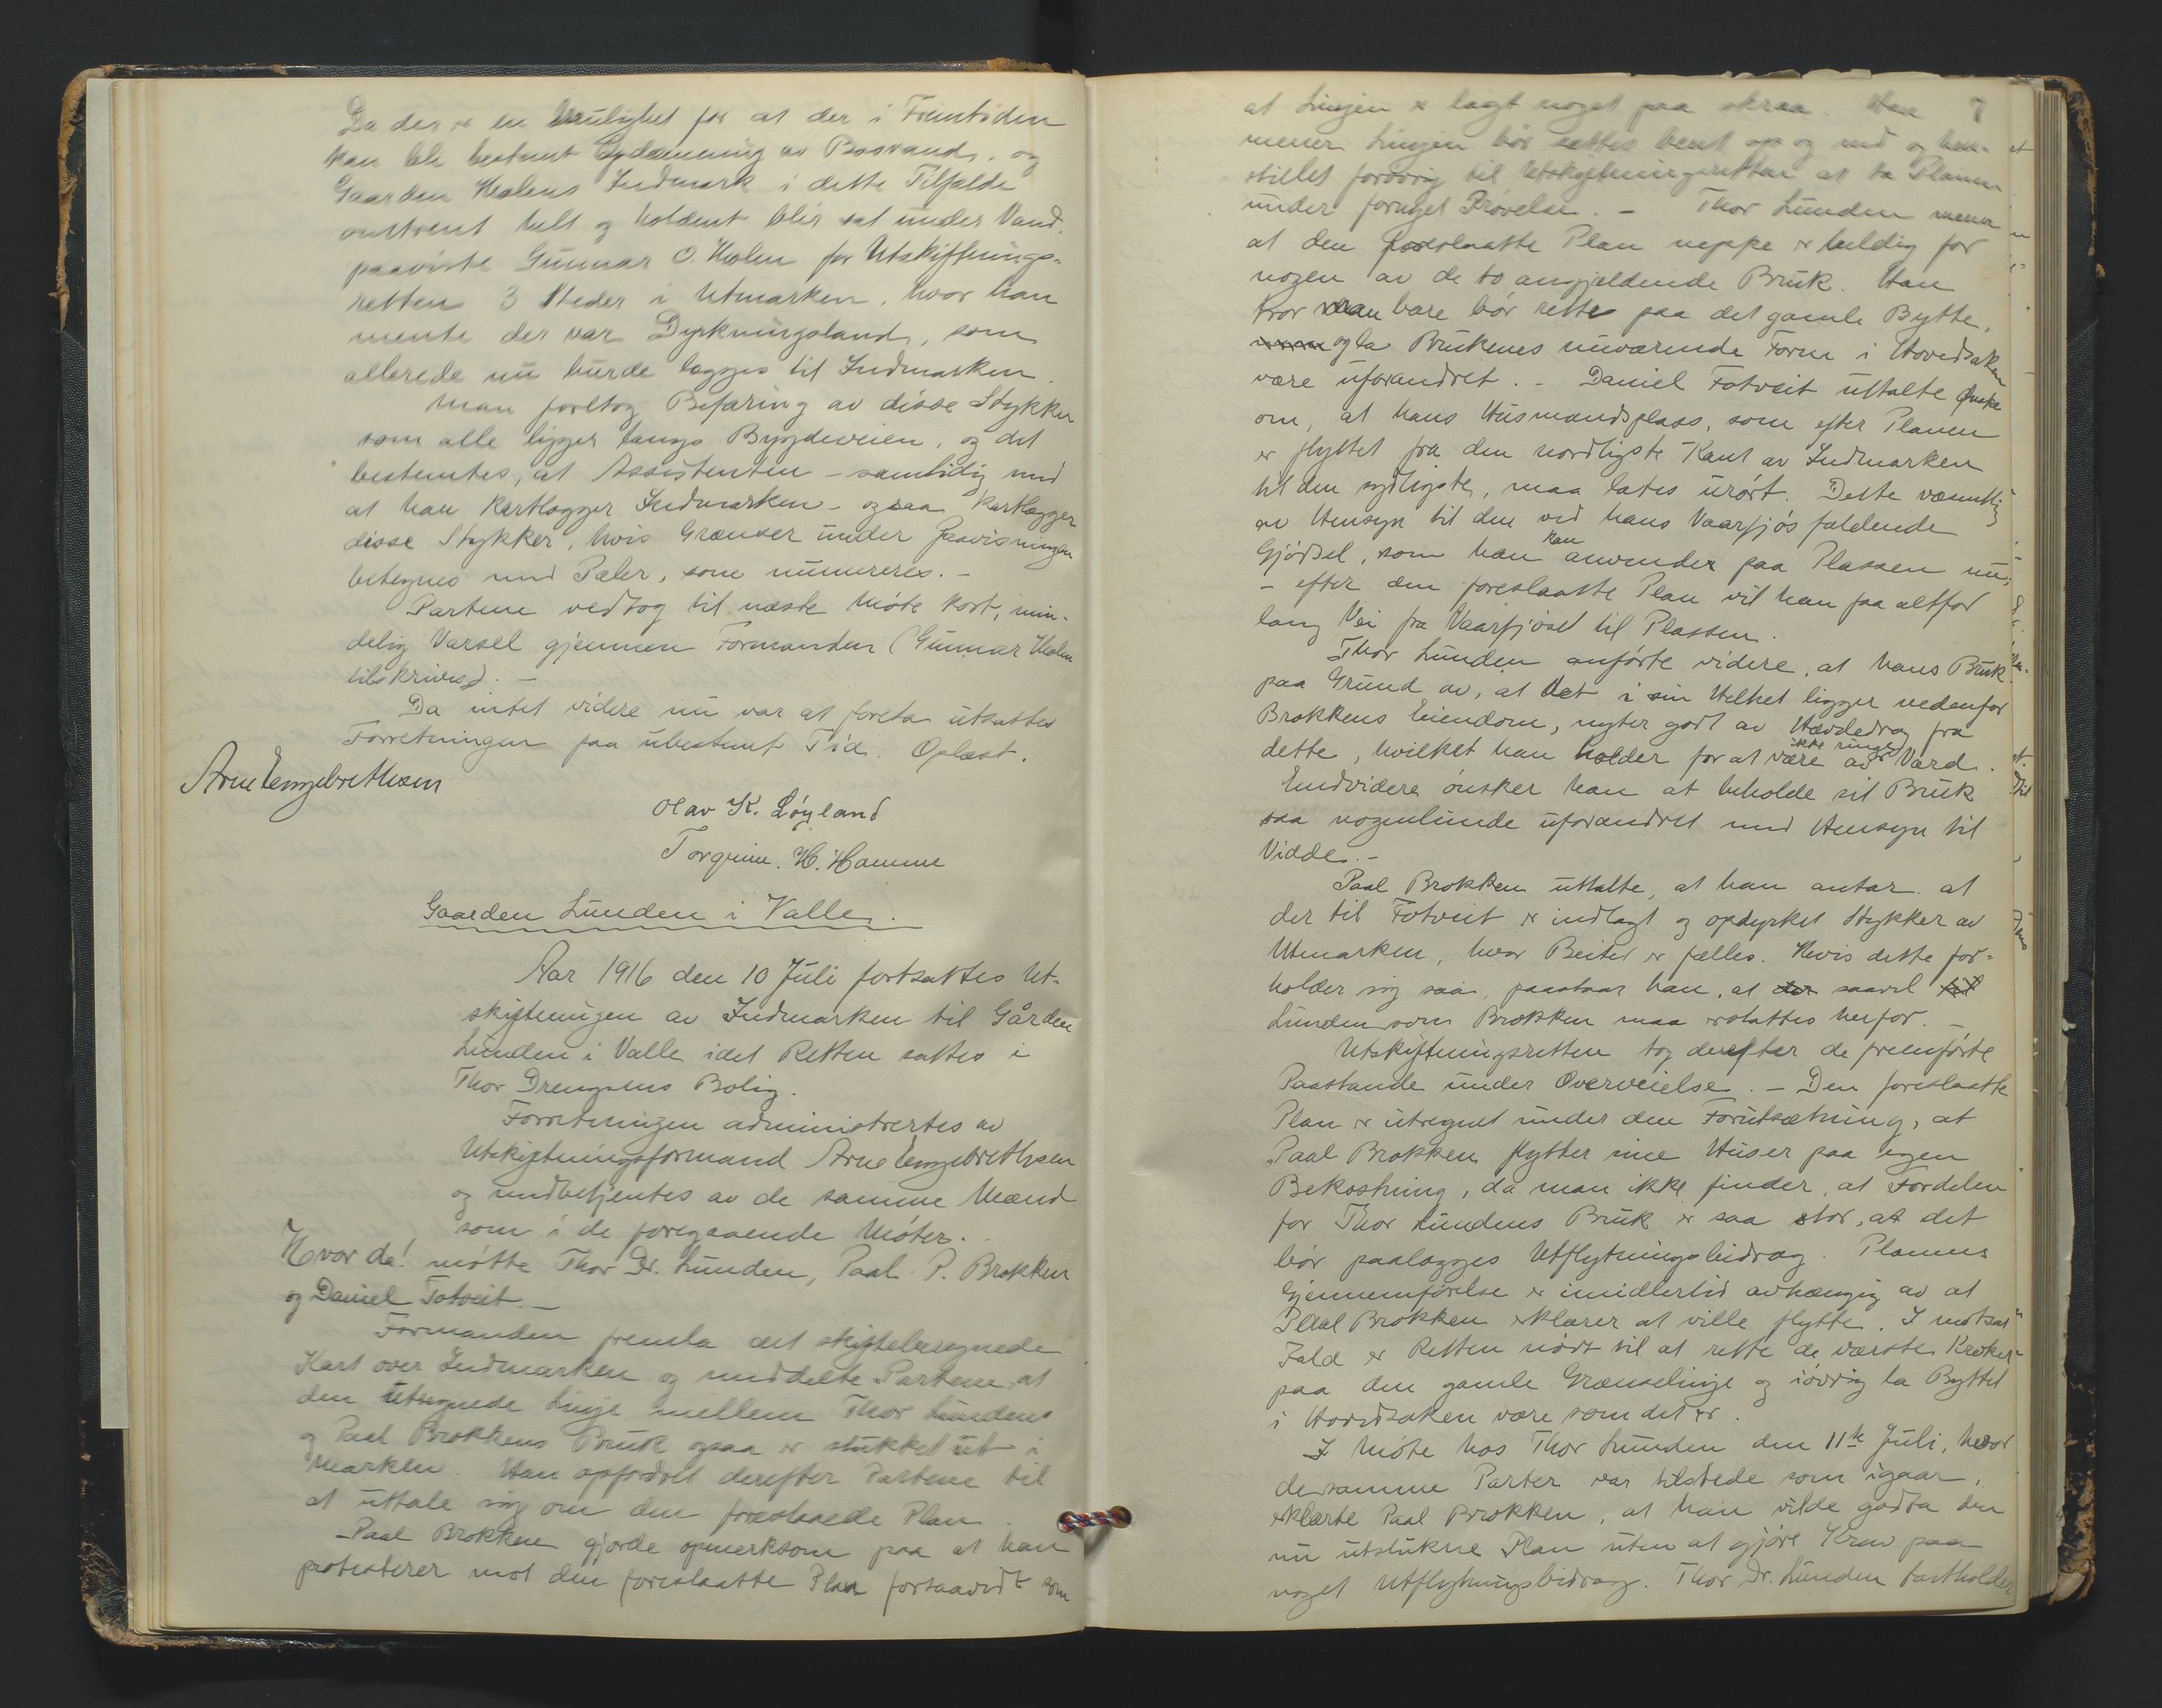 Da der er en Mulighet for at der i Fremtiden
kan bli bestemt Opdæmning av Bosvand, og
Gaarden Holens Indmark i dette Tilfælde
omtrent helt og holdent blir sat under Vand.
paaviste Gunnar O. Holen for Utskiftnings-
retten 3 Steder i Utmarken, hvor han
mente der var Dyrkningsland, som
allerede nu burde lægges til Indmarken.
Man foretog Befaring av disse Stykker
som alle ligger langs Bygdeveien, og det
bestemtes, at Assistenten – samtidig med
at han kartlægger Indmarken – ogsaa kartlægger
disse Stykker, hvis Grænser under Paavisningen
betegnes med Pæler, som numereres. –
Partene vedtog til næste Møte kort, min-
delig Varsel gjennem Formanden (Gunnar Holen
tilskrives). –
Da intet videre nu var at foreta utsattes
Forretningen paa ubestemt Tid. Oplæst.
Arne Engebrethsen
Olav K. Løyland
Torgrim. H. Homme
Gaarden Lunden i Valle.
Aar 1916 den 10 Juli fortsattes Ut-
skiftningen av Indmarken til Gården
Lunden i Valle idet Retten sattes i
Thor Drengsens Bolig.
Forretningen administrertes av
Utskiftningsformand Arne Engebrethsen
og medbetjentes av de samme Mænd
som i de foregaaende Møter.
Hvor da! møtte Thor Dr. Lunden, Paal P. Brokken
og Daniel Fotveit. –
Formanden fremla det skifteberegnede
Kart over Indmarken og meddelte Partene, at
den utregnede Linje mellem Thor Lundens
og Paal Brokkens Bruk ogsaa er stukket ut i
Marken. Han opfordret derefter Partene til
at uttale sig om den foreslaaede Plan.
Paal Brokken gjorde opmerksom paa at han
protesterer mot den foreslaatte Plan forsaavidt som
7
at Linjen er lagt noget paa skraa. Han
mener Linjen bør sættes bent op og ned og hen-
stillet forøvrig til Utskiftningsretten at ta Planen
under fornyet Prøvelse. – Thor Lunden mener
at den foreslaatte Plan neppe er heldig for
nogen av de to angjældende Bruk. Han
tror man bare bør rette paa det gamle Bytte,
og la Brukenes nuværende Form i Hovedsaken
være uforandret. – Daniel Fotveit uttalte Ønske
om, at hans Husmandsplass, som efter Planen
er flyttet fra den nordligste Kant av Indmarken
til den sydligste, maa lates urørt. Dette væsentlig
av Hensyn til den ved hans Vaarfjøs faldende
Gjødsel, som han kan anvender paa Plassen nu;
– efter den foreslaatte Plan vil han faa altfor
lang Vei fra Vaarfjøset til Plassen.
Thor Lunden anførte videre, at hans Bruk
paa Grund av, at det i sin Helhet ligger nedenfor
Brokkens Eiendom, nyter godt av Hævdedrag fra
dette, hvilket han holder for at være av ikke ringe Værd.
Endvidere ønsker han at beholde sit Bruk
saa nogenlunde uforandret med Hensyn til
Vidde. –
Paal Brokken uttalte, at han antar at
der til Fotveit er indlagt og opdyrket Stykker av
Utmarken, hvor Beitet er fælles. Hvis dette for-
holder sig saa, paastaar han, at der saavel til
Lunden som Brokken maa erstattes herfor. –
Utskiftningsretten tog derefter de fremførte
Paastande under Overveielse. – Den foreslaatte
Plan er utregnet under den Forutsætning, at
Paal Brokken flytter sine Huser paa egen
Bekostning, da man ikke finder, at Fordelen
for Thor Lundens Bruk er saa stor, at det
bør paalægges Utflytningsbidrag. Planens
Gjennemførelse er imidlertid avhængig av at
Paal Brokken erklærer at ville flytte. I motsat
Fald er Retten nødt til at rette de værste Kroker
paa den gamle Grænselinje og iøvrig la Byttet
i Hovedsaken være som det er.
I Møte hos Thor Lunden den 11te Juli, hvor
de samme Parter var tilstede som igaar,
erklærte Paal Brokken, at han vilde godta den
nu utstukne Plan uten at gjøre Krav paa
noget Utflytningsbidrag. Thor Dr. Lunden fastholder